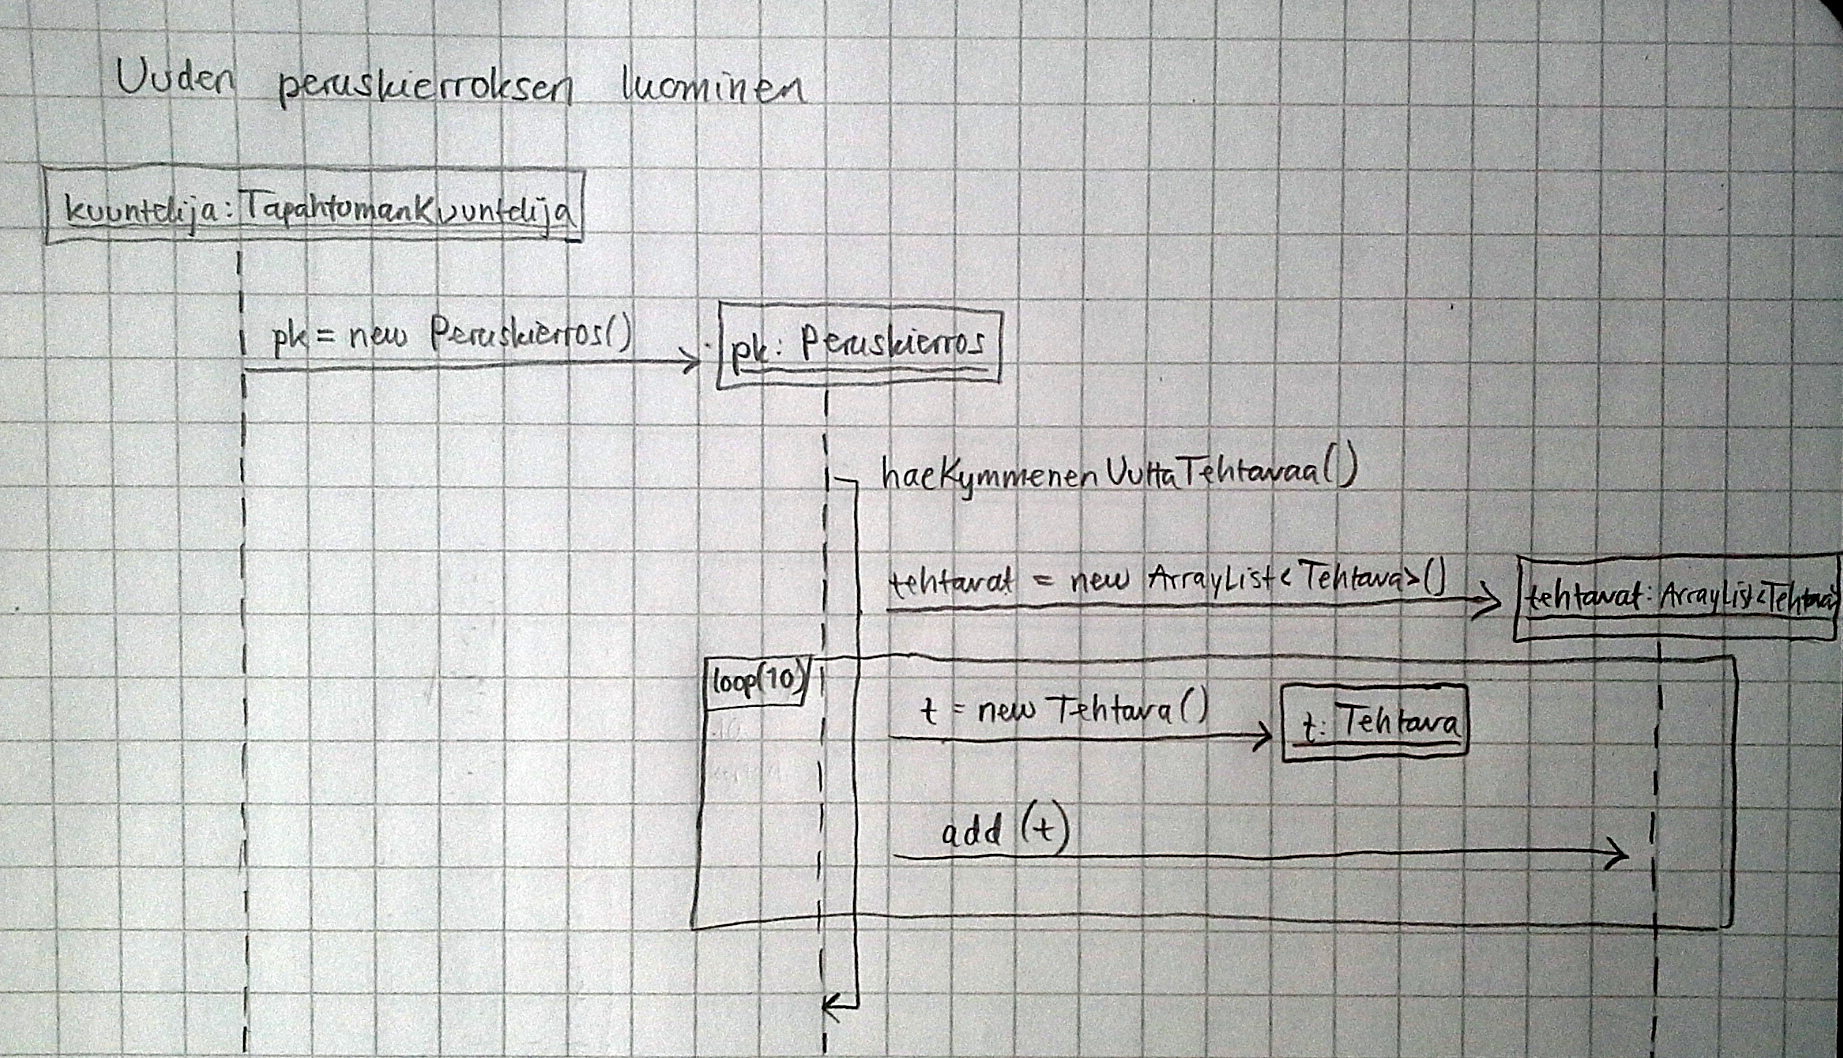 Uuden peruskierroksen luominen
kuuntelija:TapahtumanKuuntelija
pk = new Peruskierros()
pk: Peruskierros
haeKymmenenUuttaTehtavaa()
tehtavat = new ArrayList<Tehtava>()
tehtavat: ArrayList<Tehtava>
loop(10)
t = new Tehtava()
t: Tehtava
add (t)